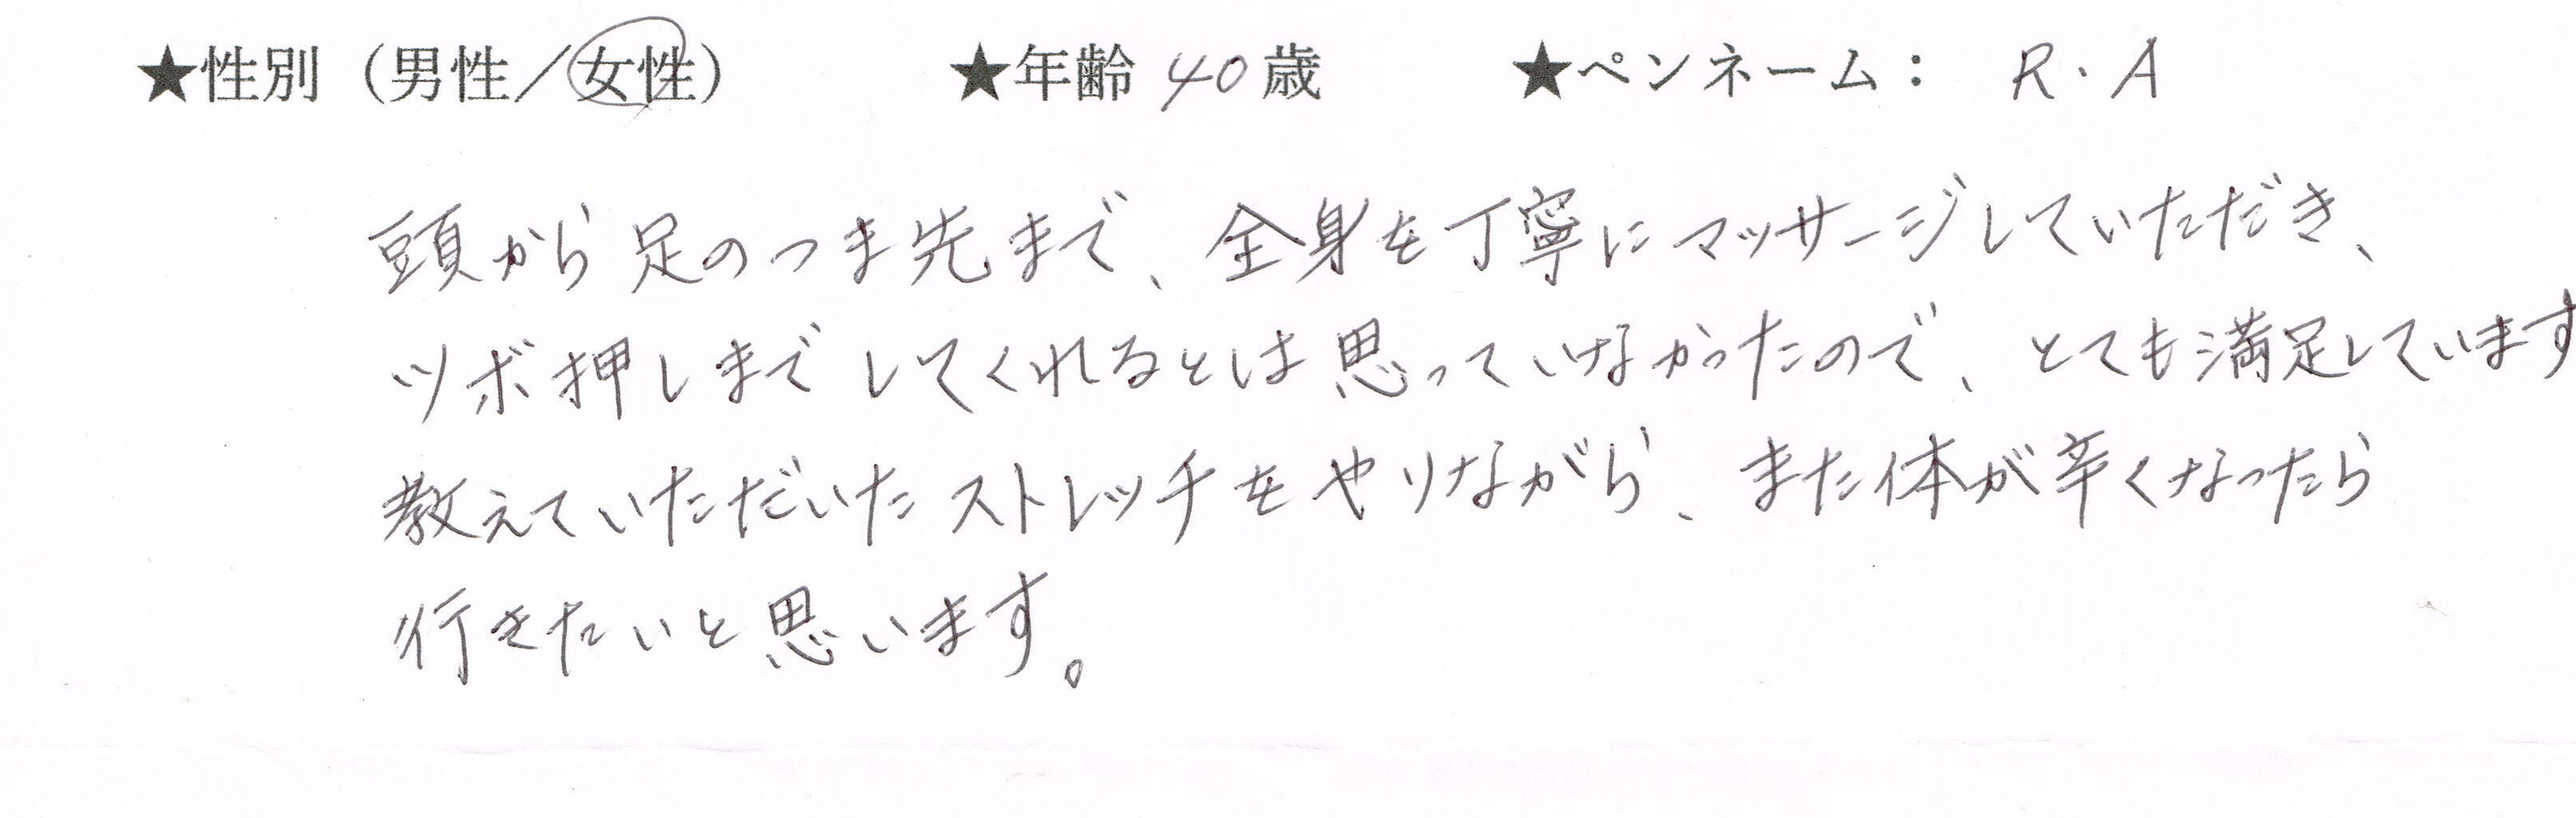 ★性別（男性／女性） ★年齢 40 歳 ★ペンネーム： R・A
頭から足のつま先まで、全身を丁寧にマッサージしていただき、
ツボ押しまでしてくれるとは思っていなかったので、とても満足しています
教えていただいたストレッチをやりながら、また体が辛くなったら
行きたいと思います。